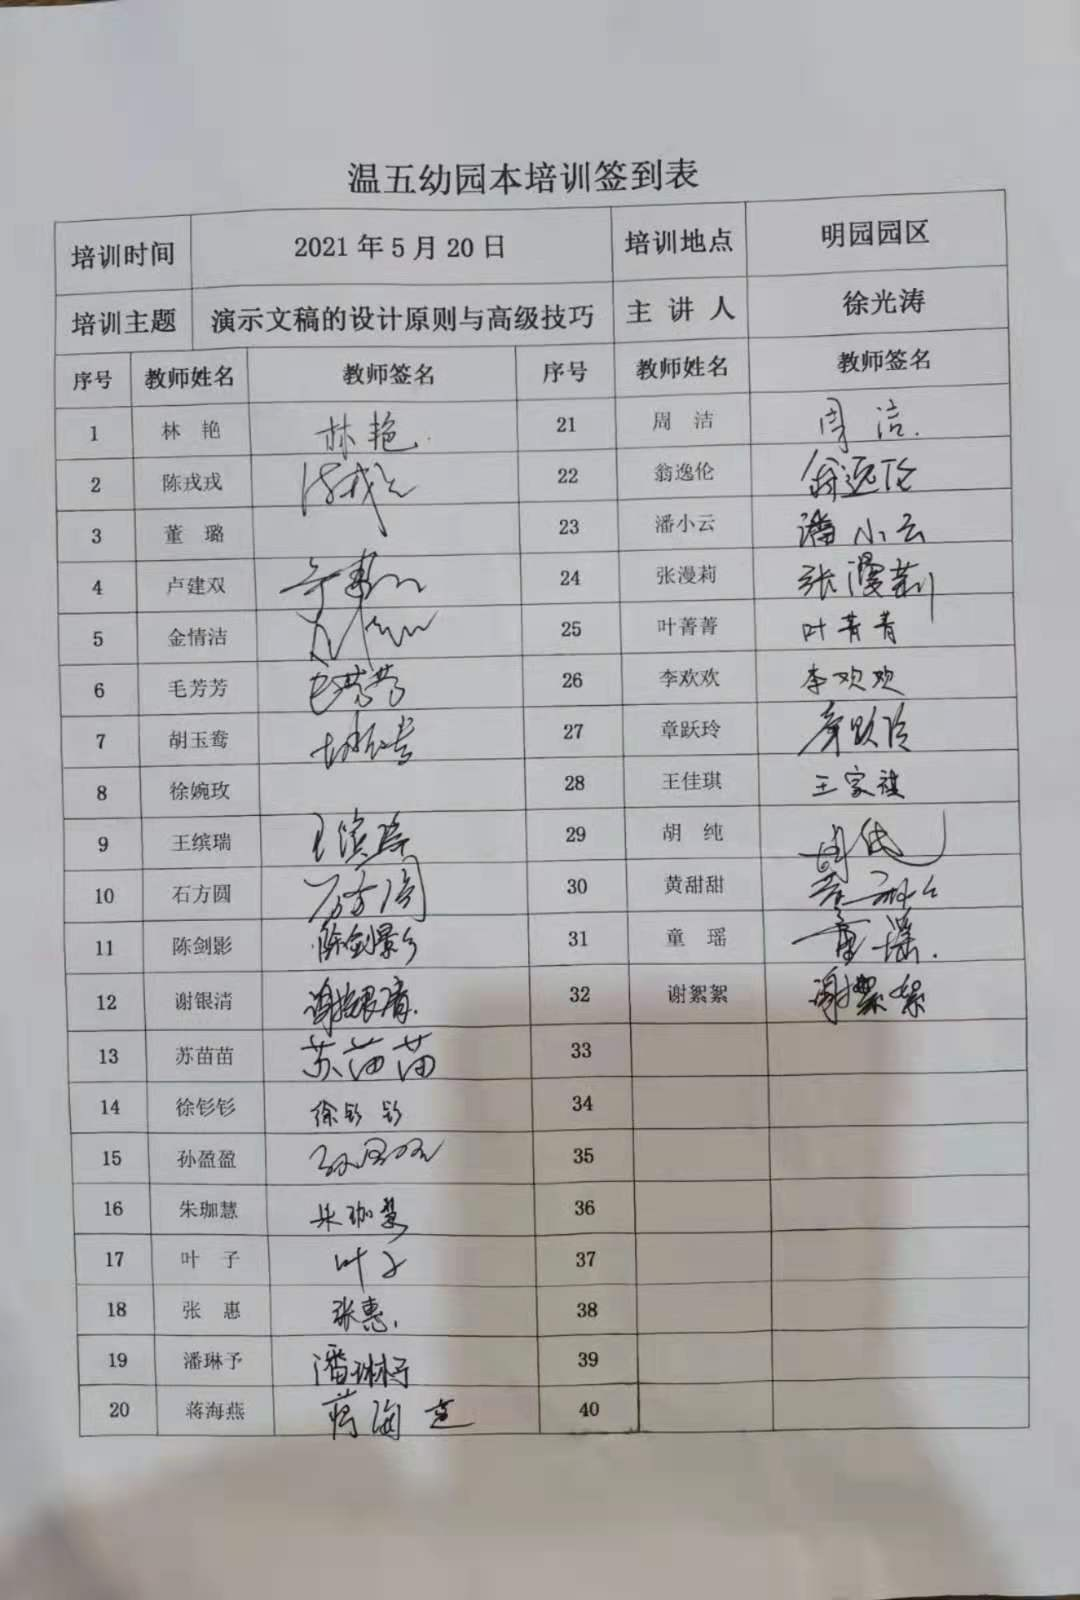 温五幼园本培训签到表
培训时间 2021年5月20日 培训地点 明园园区
培训主题 演示文稿的设计原则与高级技巧 主讲人 徐光涛
序号 教师姓名 教师签名 序号 教师姓名 教师签名
1 林艳 林艳 21 周洁 周洁
2 陈戎戎 22 翁逸伦 翁逸伦
3 董璐 23 潘小云 潘小云
4 卢建双 24 张漫莉 张漫莉
5 金情洁 25 叶菁菁 叶菁青
6 毛芳芳 毛芳芳 26 李欢欢 李欢欢
7 胡玉鸯 27 章跃玲 章跃玲
8 徐婉玫 28 王佳琪 王家祺
9 王缤瑞 29 胡纯
10 石方圆 石方圆 30 黄甜甜
11 陈剑影 陈剑影 31 童瑶 童瑶
12 谢银清 谢银清 32 谢絮絮 谢絮絮
13 苏苗苗 苏苗苗 33
14 徐钐钐 徐钐钐 34
15 孙盈盈 35
16 朱珈慧 朱珈慧 36
17 叶子 叶子 37
18 张惠 张惠 38
19 潘琳予 潘琳予 39
20 蒋海燕 蒋海 40